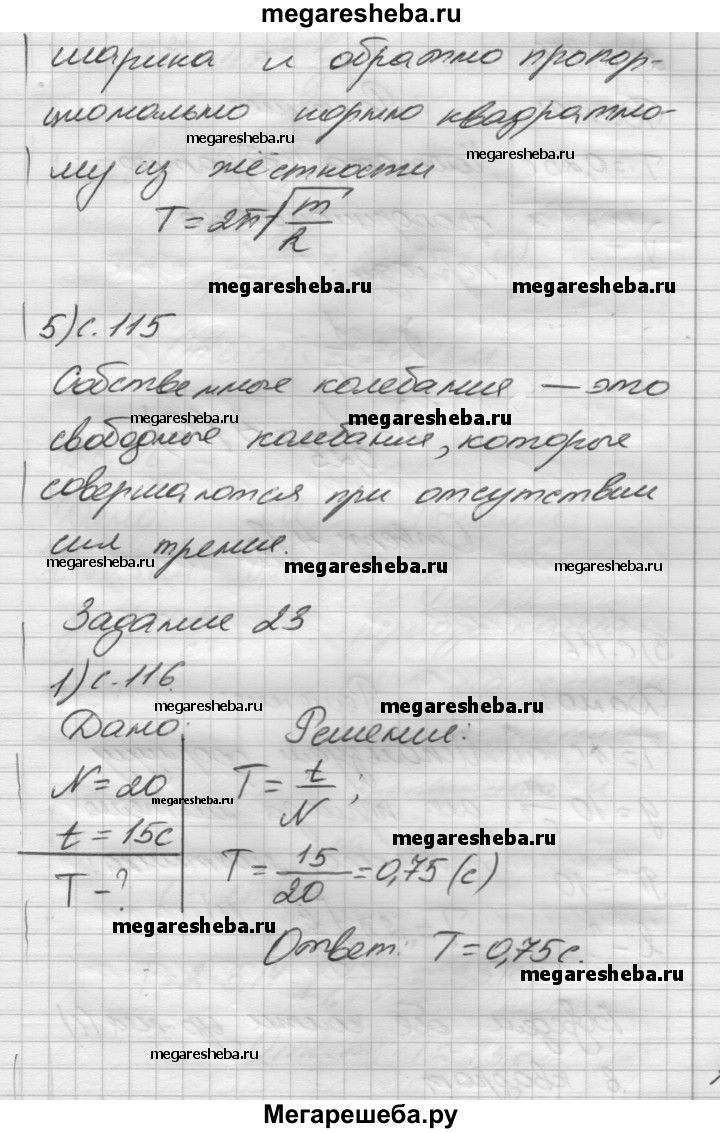 megaresheba.ru
шарика и обратно пропор-
ционально
megaresheba.ru
корню квадратно-
megaresheba.ru
му из жёсткости
T=2π√m/k
megaresheba.ru
megaresheba.ru
5)с.115
Собственные колебания — это
megaresheba.ru
megaresheba.ru
свободные колебания, которые
совершаются при отсутствии
сил трения.
megaresheba.ru
megaresheba.ru
megaresheba.ru
Задание 23
1)с.116.
megaresheba.ru
megaresheba.ru
Дано: Решение:
N=20 T=t/N;
megaresheba.ru
t=15c
megaresheba.ru
T-? T=15/20=0,75(с)
megaresheba.ru
Ответ: T=0,75с.
megaresheba.ru
megaresheba.ru
Мегарешеба.ру